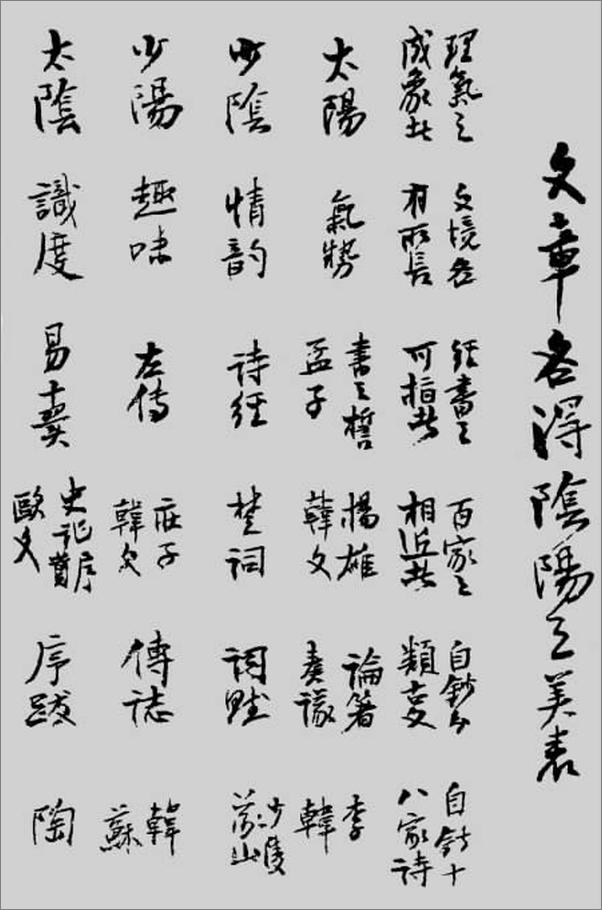 文章各得陰陽之美表
理氣之成象者 文境各有所長 經書之可指者 百家之相近者 自鈔分類文 自鈔十八家詩
太陽 氣勢 書之誓孟子 揚雄韓文 論著奏議 李韓
少陰 情韵 詩經 楚詞 詞賦 少陵義山
少陽 趣味 左傳 莊子韓文 傳誌 韓蘇
太陰 識度 易十翼 史記序贊歐文 序跋 陶